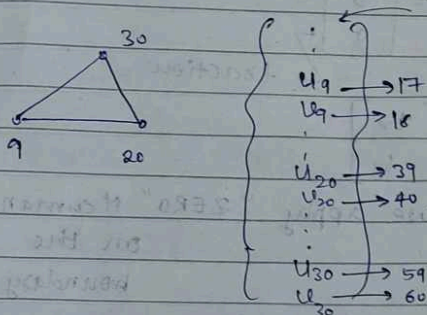 30
9
20
⋮
u9 → 17
v9 → 18
⋮
u20 → 39
v20 → 40
⋮
u30 → 59
v30 → 60